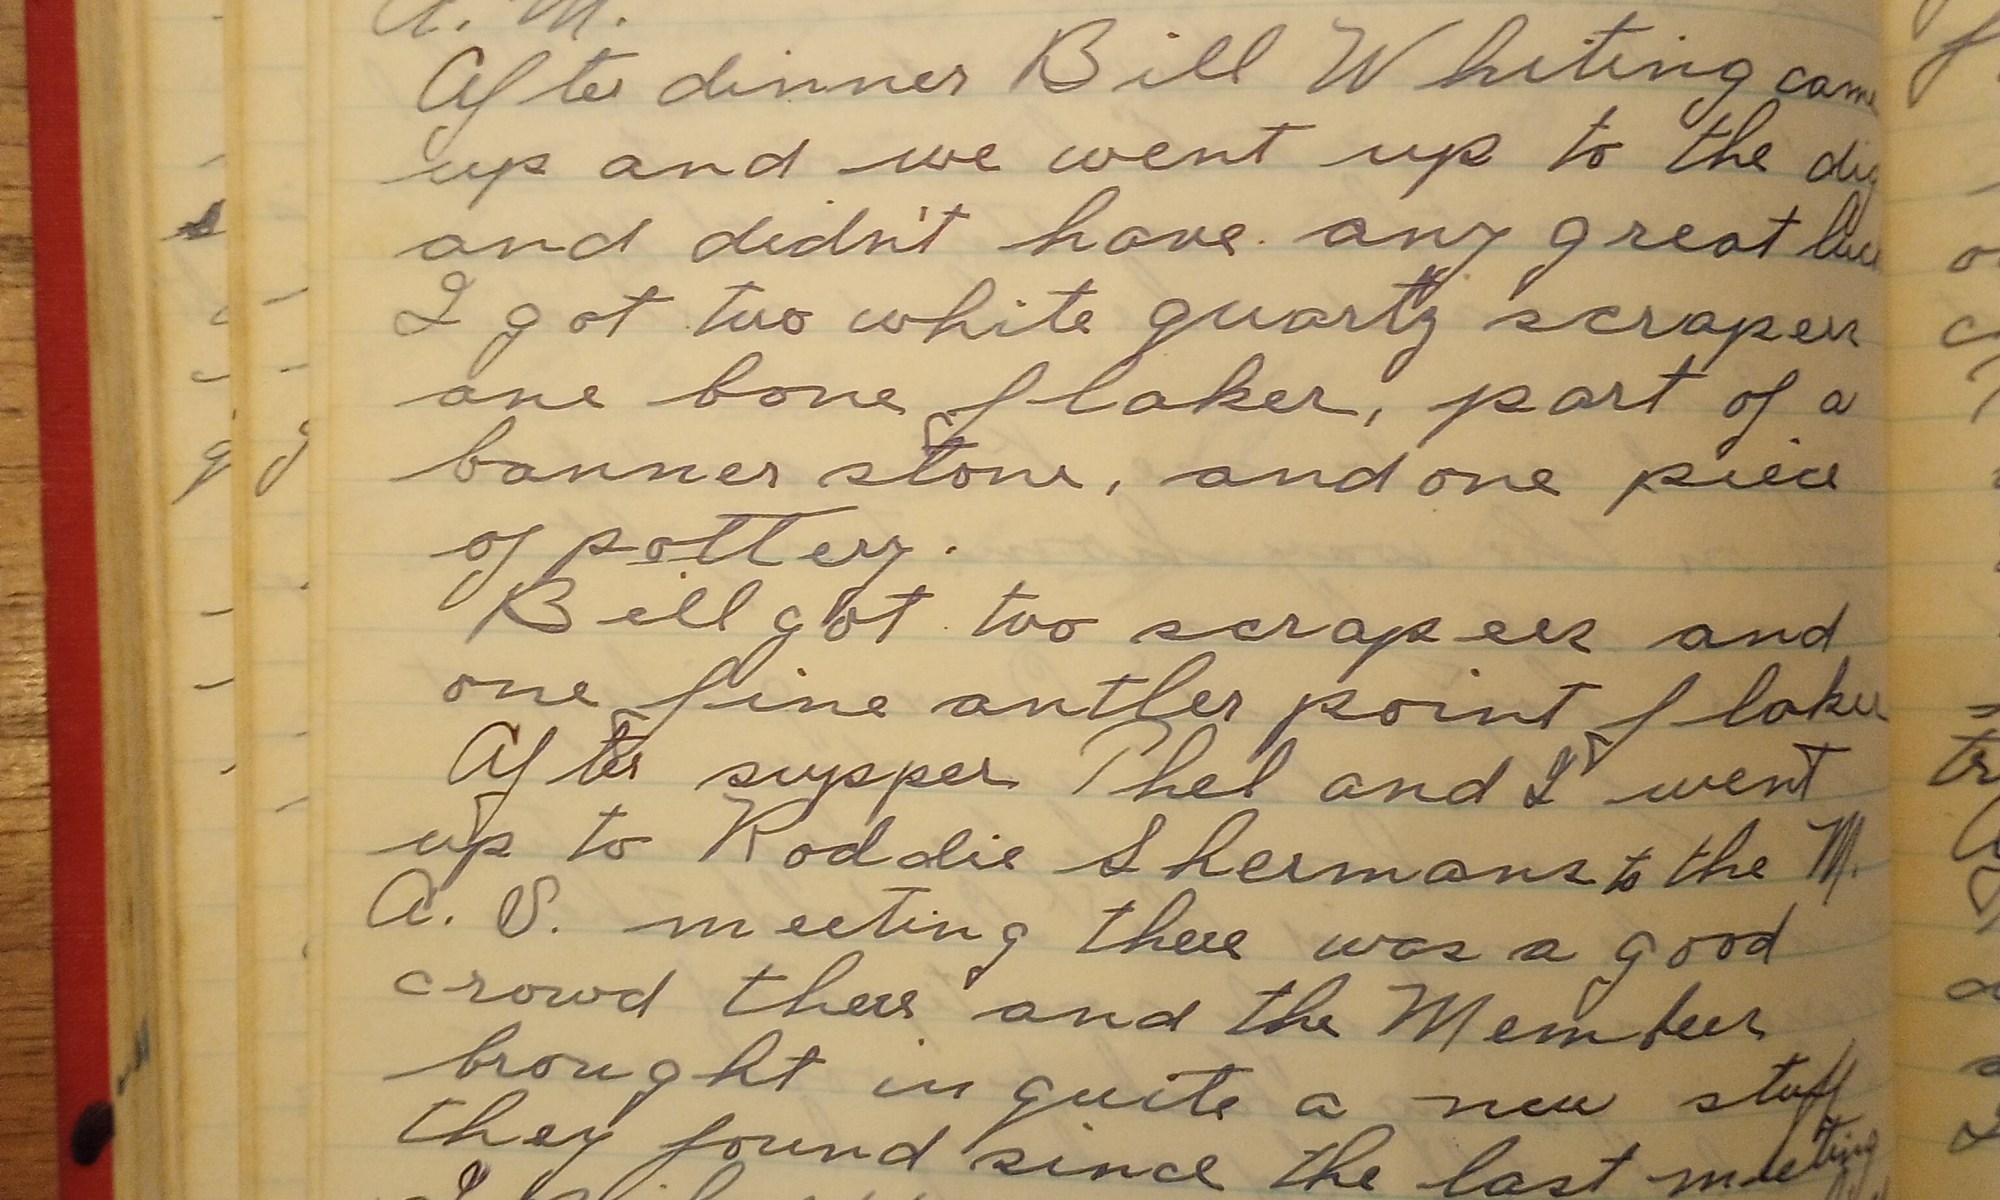 A. M.
After dinner Bill Whiting came
up and we went up to the dig
and didn't have any great luck
I got two white quartz scrapers
one bone flaker, part of a
banner stone, and one piece
of pottery.
Bill got two scrapers and
one fine antler point flaker
After supper Phel and I went
up to Roddie Shermans to the M.
A. S. meeting there was a good
crowd there and the Members
brought in quite a new stuff
they found since the last meeting